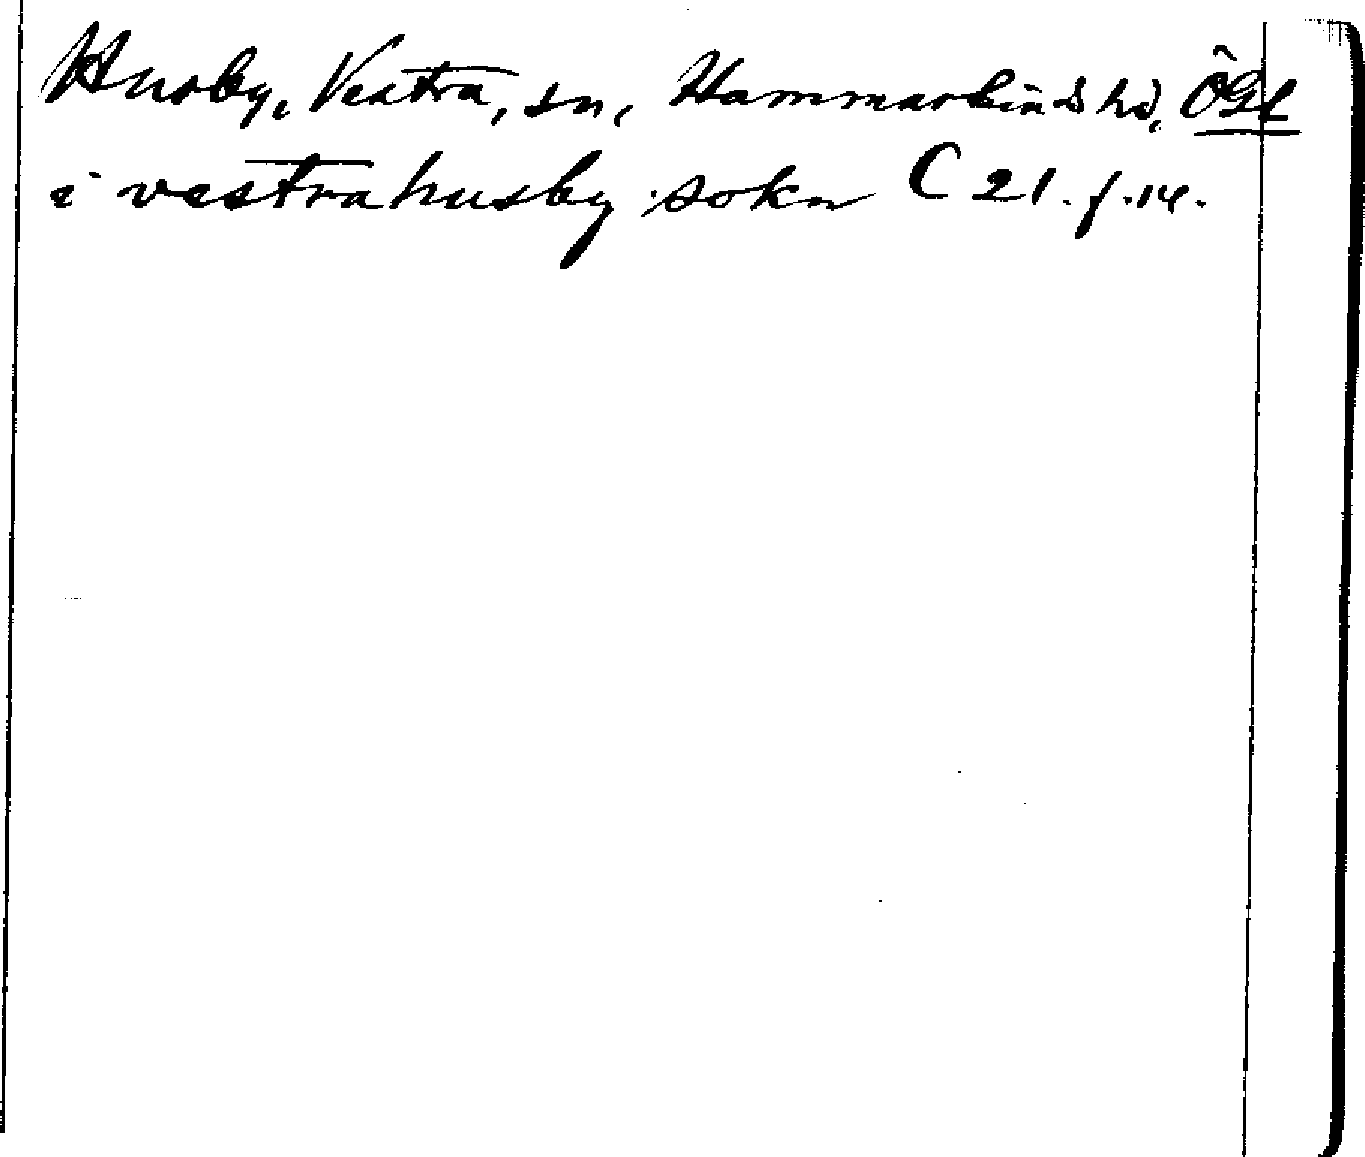 Husby, Vestra, sn, Hammarkinds hd, ÖGl
i vestrahusby sokn C 21. f. 14.